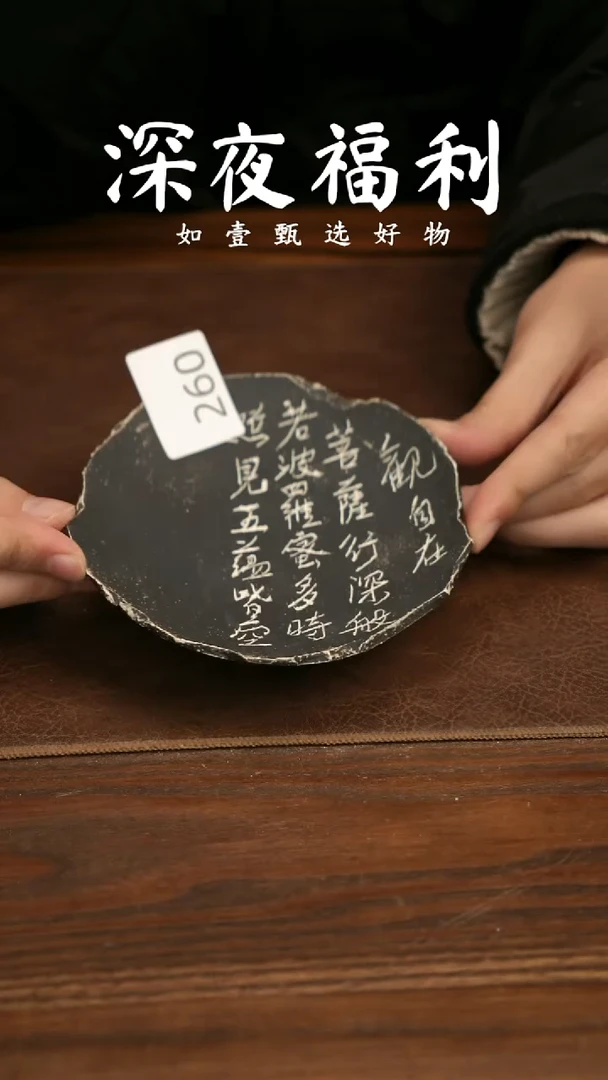 深夜福利
如壹甄选好物
260
觀自在
菩薩行深般
若波羅蜜多時
照見五蘊皆空